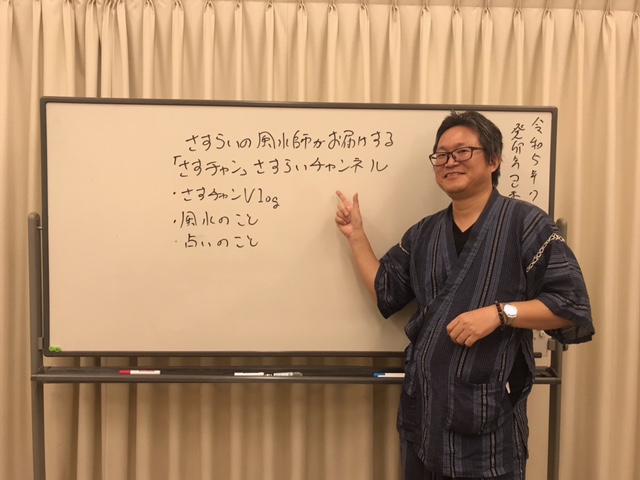 さすらいの風水師がお届けする
「さすチャン」さすらいチャンネル
・さすチャンVlog
・風水のこと
・占いのこと
令和5年7
癸卯年己未